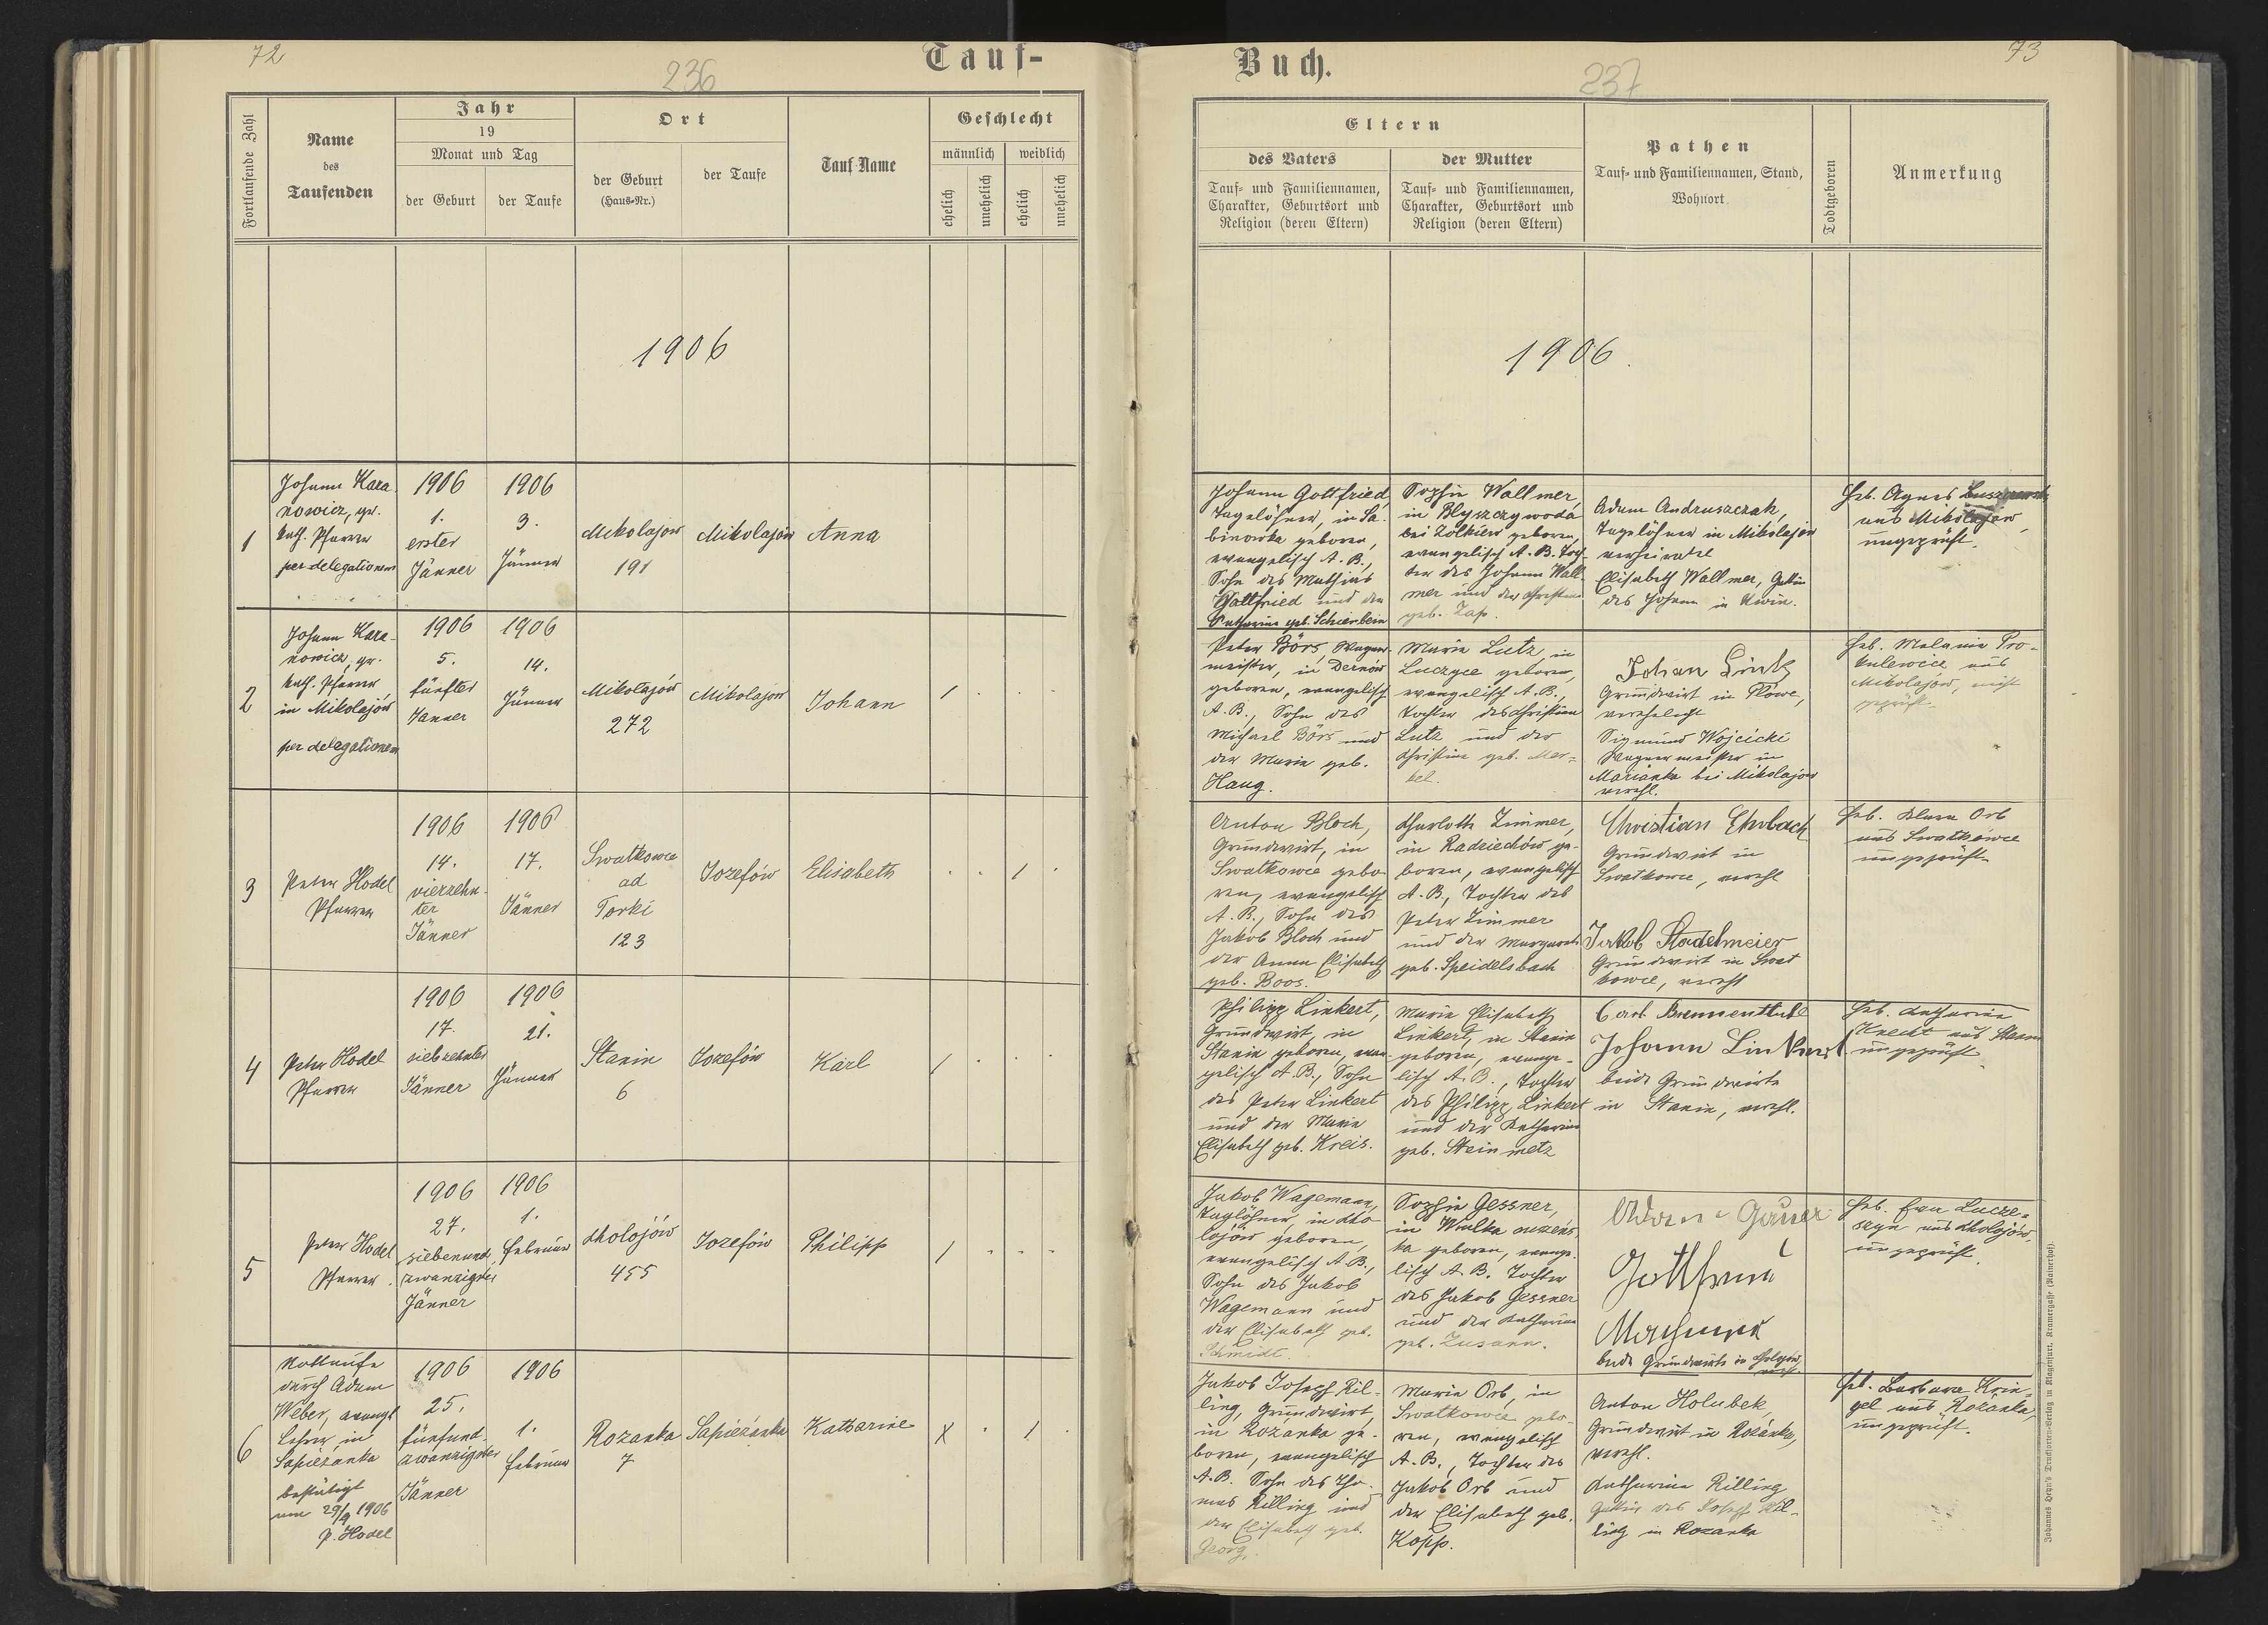 72
236
Tauf-
Fortlaufende Zahl
Name
des
Taufenden
Jahr
19
Monat und Tag
der Geburt
der Taufe
Ort
der Geburt
(Haus-Nr.)
der Taufe
Tauf-Name
Geschlecht
männlich
weiblich
ehelich
unehelich
ehelich
unehelich
1906
1
Johann Kara-
nowicz, gr.
kath. Pfarrer
per delegationem
1906
1.
erster
Jänner
1906
3.
Jänner
Mikolajow
191
Mikolajów
Anna
2
Johann Kara-
nowicz, gr.
kath. Pfarrer
in Mikolajów
per delegationem
1906
5.
fünfter
Janner
1906
14.
Jänner
Mikolajów
272
Mikolajow
Johann
/
3
Peter Hodel
Pfarrer
1906
14.
vierzehn-
ter
Jänner
1906
17.
Jänner
Swatkowce
ad
Torki
123
Jozefów
Elisabeth
/
4
Peter Hodel
Pfarrer
1906
17.
siebzehnter
Jänner
1906
21.
Jänner
Stanin
6
Jozefów
Karl
/
5
Peter Hodel
Pfarrer.
1906
27.
siebenund-
zwanzigster
Jänner
1906
1.
Februar
Chołojów
455
Jozefów
Philipp
/
6
Nottaufe
durch Adam
Weber, evangl
Lehrer in
Sapiezanka
bestätigt
am 29/9 1906
P. Hodel
1906
25.
fünfund-
zwanzigster
Jänner
1906
1.
Februar
Rozanka
7
Sapiezanka
Katharine
X
/
Buch.
73
237
Eltern
des Vaters
Tauf- und Familiennamen,
Charakter, Geburtsort und
Religion (deren Eltern)
der Mutter
Tauf- und Familiennamen,
Charakter, Geburtsort und
Religion (deren Eltern)
Pathen
Tauf- und Familiennamen, Stand,
Wohnort
Todtgeboren
Anmerkung
1906.
Johann Gottfried,
Tagelöhner, in Sa-
binowka geboren,
evangelisch A. B.,
Sohn des Mathias
Gottfried und der
Catharina geb. Schierbein
Sophie Wallmer,
in Blyszczywoda
bei Zolkiew geboren,
evangelisch A. B. Toch-
ter des Johann Wall-
mer und der Christine
geb. Zap.
Adam Andruszczak,
Tagelöhner in Mikolajow
verheiratet
Elisabeth Wallmer, Gattin
des Johann in
Heb. Agnes
aus Mikolajów,
ungeprüft.
Peter Börs, Wagner-
meister, in Dernów
geboren, evangelisch
A. B., Sohn des
Michael Börs und
der Maria geb.
Haug.
Maria Lutz, in
Luczyce geboren,
evangelisch A. B.,
Tochter des Christian
Lutz und der
Christine geb. Mer-
kel.
Johan Link
Grundwirt in
verehelicht
Sigmund Wojcicki
Wagnermeister in
Marianka bei Mikolajow
verehl.
Heb. Melanie Pro-
kulewicz aus
Mikolajów, nicht
geprüft.
Anton Bloch,
Grundwirt, in
Swatkowce gebo-
ren, evangelisch
A. B., Sohn des
Jakob Bloch und
der Anna Elisabeth
geb. Boos.
Charlotte Zimmer,
in Radziechów ge-
boren, evangelisch
A. B., Tochter des
Peter Zimmer
und der Margarethe
geb. Speidelsbach
Christian Ehrbach
Grundwirt in
Swatkowce, verehl
Jakob Stadelmeier
Grundwirt in Swat
kowce, verehl
Heb. Klara Orb
aus Swatkowce
ungeprüft.
Philipp Linkert,
Grundwirt, in
Stanin geboren, evan-
gelisch A. B., Sohn
des Peter Linkert
und der Maria
Elisabeth geb. Kreis.
Maria Elisabeth
Linkert, in Stanin
geboren, evange-
lisch A. B., Tochter
des Philipp Linkert
und der Katharina
geb. Steinmetz
Johann Linkert
beide Grundwirte
in Stanin, verehl.
Heb. Katharina
Knecht aus Stanin
ungeprüft
Jakob Wagemann,
Taglöhner, in Cho-
lojów geboren,
evangelisch A. B.,
Sohn des Jakob
Wagemann und
der Elisabeth geb.
Schmidt.
Sophie Gessner,
in Wulka suszens-
ka geboren, evange-
lisch A. B. Tochter
des Jakob Gessner
und der Katharina
geb. Zusann.
Adam Gauer
Gottfried
beide Grundwirte in Cholojów,
verehl.
Heb. Ewa Lucze-
szyn aus Cholojów,
ungeprüft.
Jakob Joseph Ril-
ling, Grundwirt,
in Rozanka ge-
boren, evangelisch
A. B. Sohn des Tho-
mas Rilling und
der Elisabeth geb.
Georg.
Maria Orb, in
Swatkowce gebo-
ren, evangelisch
A. B., Tochter des
Jakob Orb und
der Elisabeth geb.
Kopp.
Anton Holubek,
Grundwirt in Rozanka,
verehl.
Katharina Rilling
Gattin des Joseph Ril-
ling in Rozanka
Heb. Barbara Krin-
gel aus Rozanka,
ungeprüft.
Johannes Heyn's Drucksorten-Verlag in Klagenfurt, Kramergasse (Rainerhof).